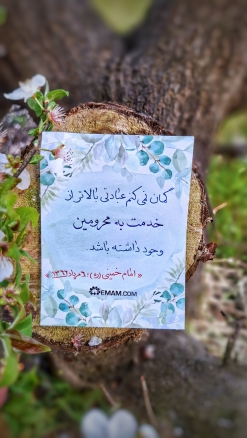 گمان نمی‌کنم عبادتی بالاتر از
خدمت به محرومین
وجود داشته باشد
امام خمینی (ره)؛ ۶ مرداد ۱۳۶۲
EMAM.COM